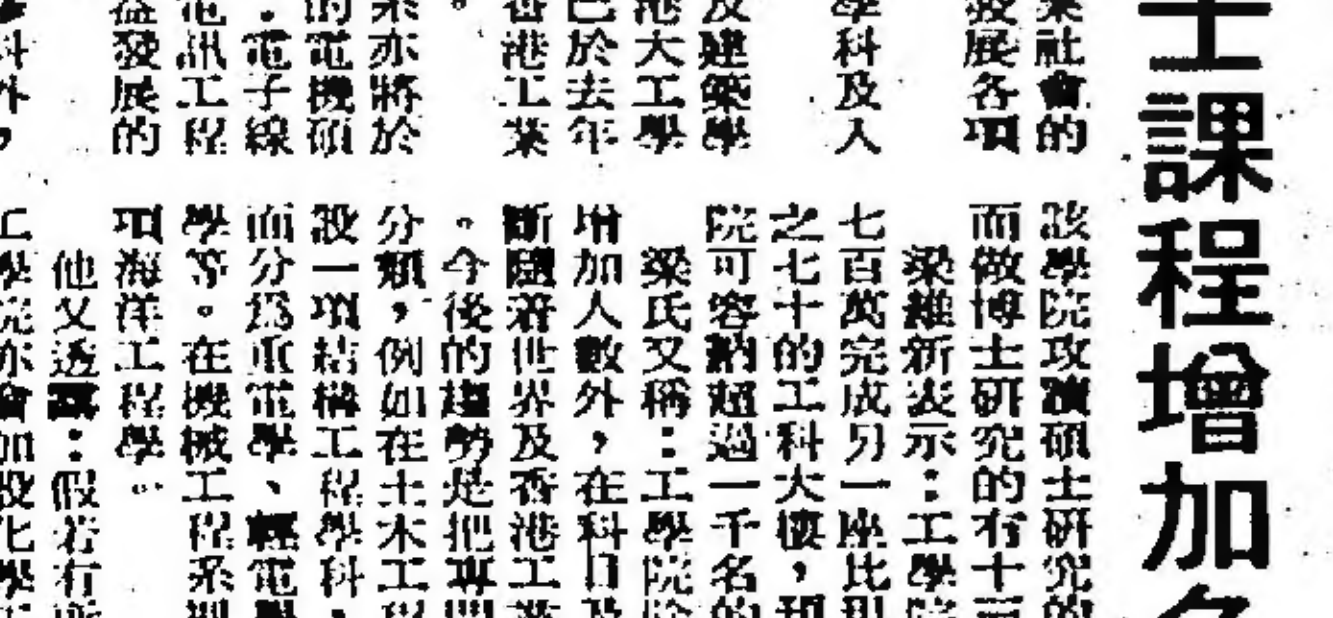 士課程增加
業社會的
發展各項
學科及人
及建築學
港大工學
已於去年
香港工業
。
系亦將於
的電機碩
．電子線
電訊工程
益發展的
科外，
該學院攻讀碩士研究的
而做博士研究的有十
梁維新表示：工學院
七百萬完成另一座比現
之七十的工科大樓，
院可容納超過一千名的
梁氏又稱：工學院除
增加人數外，在科目及
斷隨着世界及香港工業
。今後的趨勢是把專門
分類，例如在土木工程
設一項結構工程學科，
而分爲重電學、輕電學
學等。在機械工程系則
項海洋工程學。
他又透露：假若有所
工學院亦會加設化學工